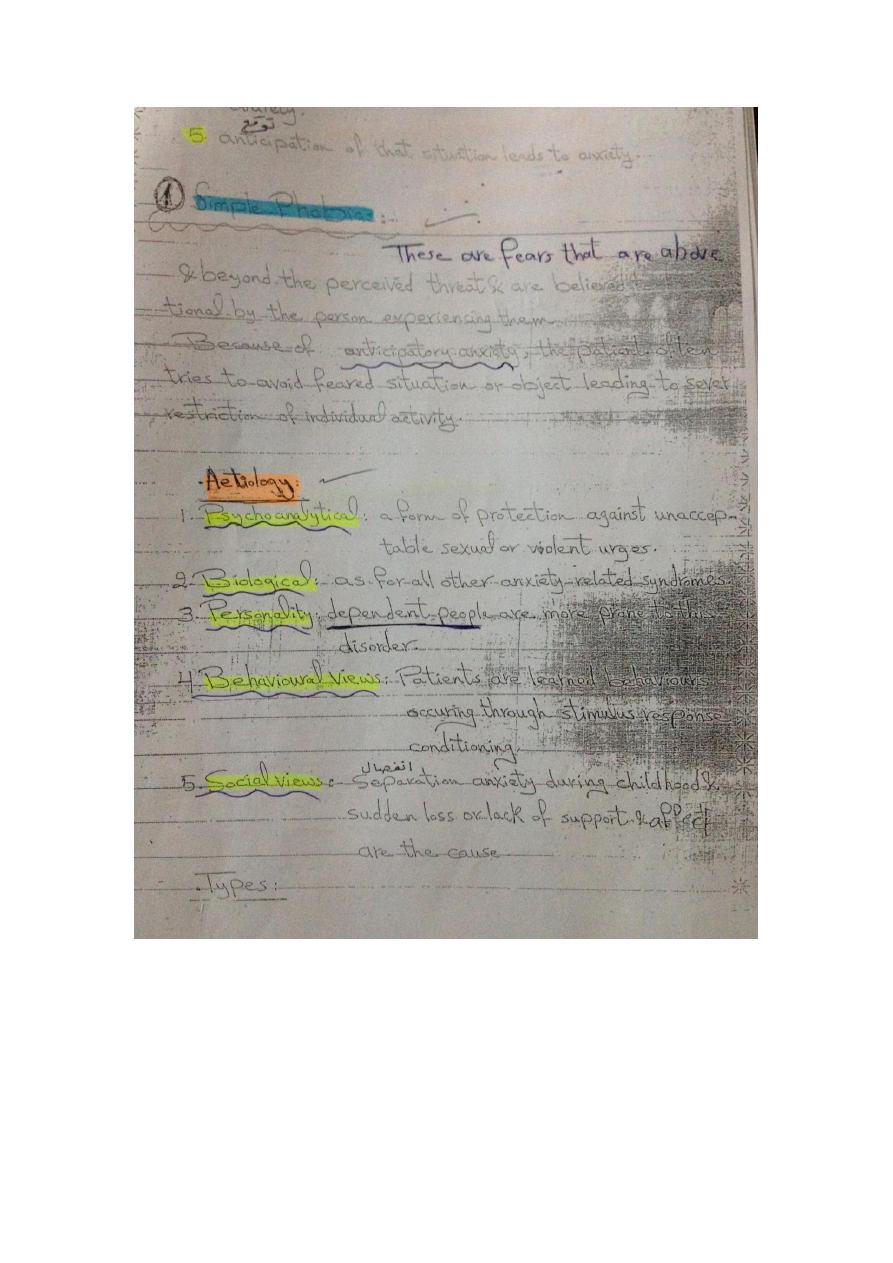 توقع
5. anticipation of that situation leads to anxiety.
① Simple Phobia:
These are fears that are above
& beyond the perceived threat & are believed
tional by the person experiencing them
Because of anticipatory anxiety, the patient often
tries to avoid feared situation or object leading to sever
restriction of individual activity.
. Aetiology:
1. Psychoanalytical: a form of protection against unaccep-
table sexual or violent urges.
2. Biological: as for all other anxiety related syndromes
3. Personality: dependent people are more prone to this
disorder.
4 Behavioural views: Patients are learned behaviours
occuring through stimulus response
conditioning
انفصال
5. Social views: Separation anxiety during childhood &
sudden loss or lack of support & affect
are the cause
. Types: